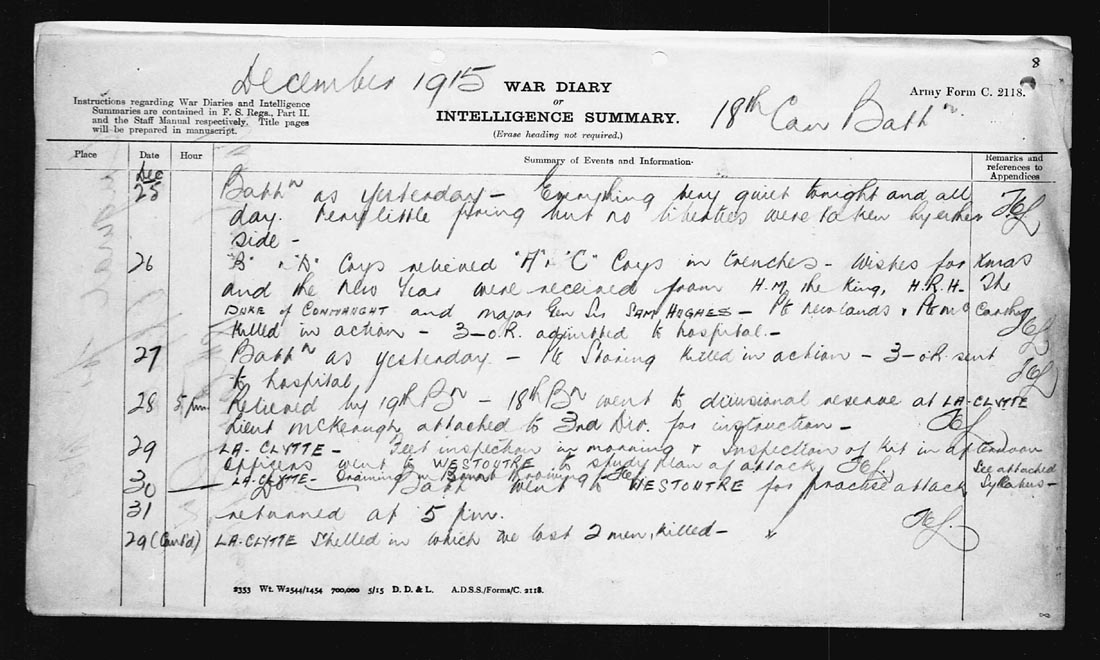 8
December 1915
WAR DIARY
or
INTELLIGENCE SUMMARY.
(Erase heading not required.)
Army Form C. 2118.
18th Can Battn.
Instructions regarding War Diaries and Intelligence
Summaries are contained in F. S. Regs., Part II.
and the Staff Manual respectively. Title pages
will be prepared in manuscript.
Place Date Hour Summary of Events and Information. Remarks and references to Appendices
Dec
25 Battn as yesterday – Everything very quiet tonight and all
day. Very little firing but no liberties were taken by either
side –
26 "B" & "D" Coys relieved "A" & "C" Coys in trenches – Wishes for Xmas
and the New Year were received from H.M. the King, H.R.H. The
DUKE of CONNAUGHT and Major Gen Sir SAM HUGHES – Pte Newlands & Pte McCarthy
Killed in action – 3–o.R. admitted to hospital. –
27 Battn as yesterday. – Pte Storing Killed in action – 3–o.R. sent
to hospital
28 5 pm Relieved by 19th Bn – 18th Bn went to divisional reserve at LA-CLYTTE
Lieut McKeough attached to 3rd Div. for instruction –
29 LA-CLYTTE – Feet inspection in morning & Inspection of Kit in afternoon
Officers went to WESTOUTRE to study plan of attack
See attached
Syllabus –
30 LA-CLYTTE – Training
31 Battn went to WESTOUTRE for practise attack
returned at 5 p.m.
29 (Cont'd) LA-CLYTTE Shelled in which we lost 2 men, Killed –
2353 Wt. W2544/1454 700,000 5/15 D. D. & L. A.D.S.S./Forms/C. 2118.
8